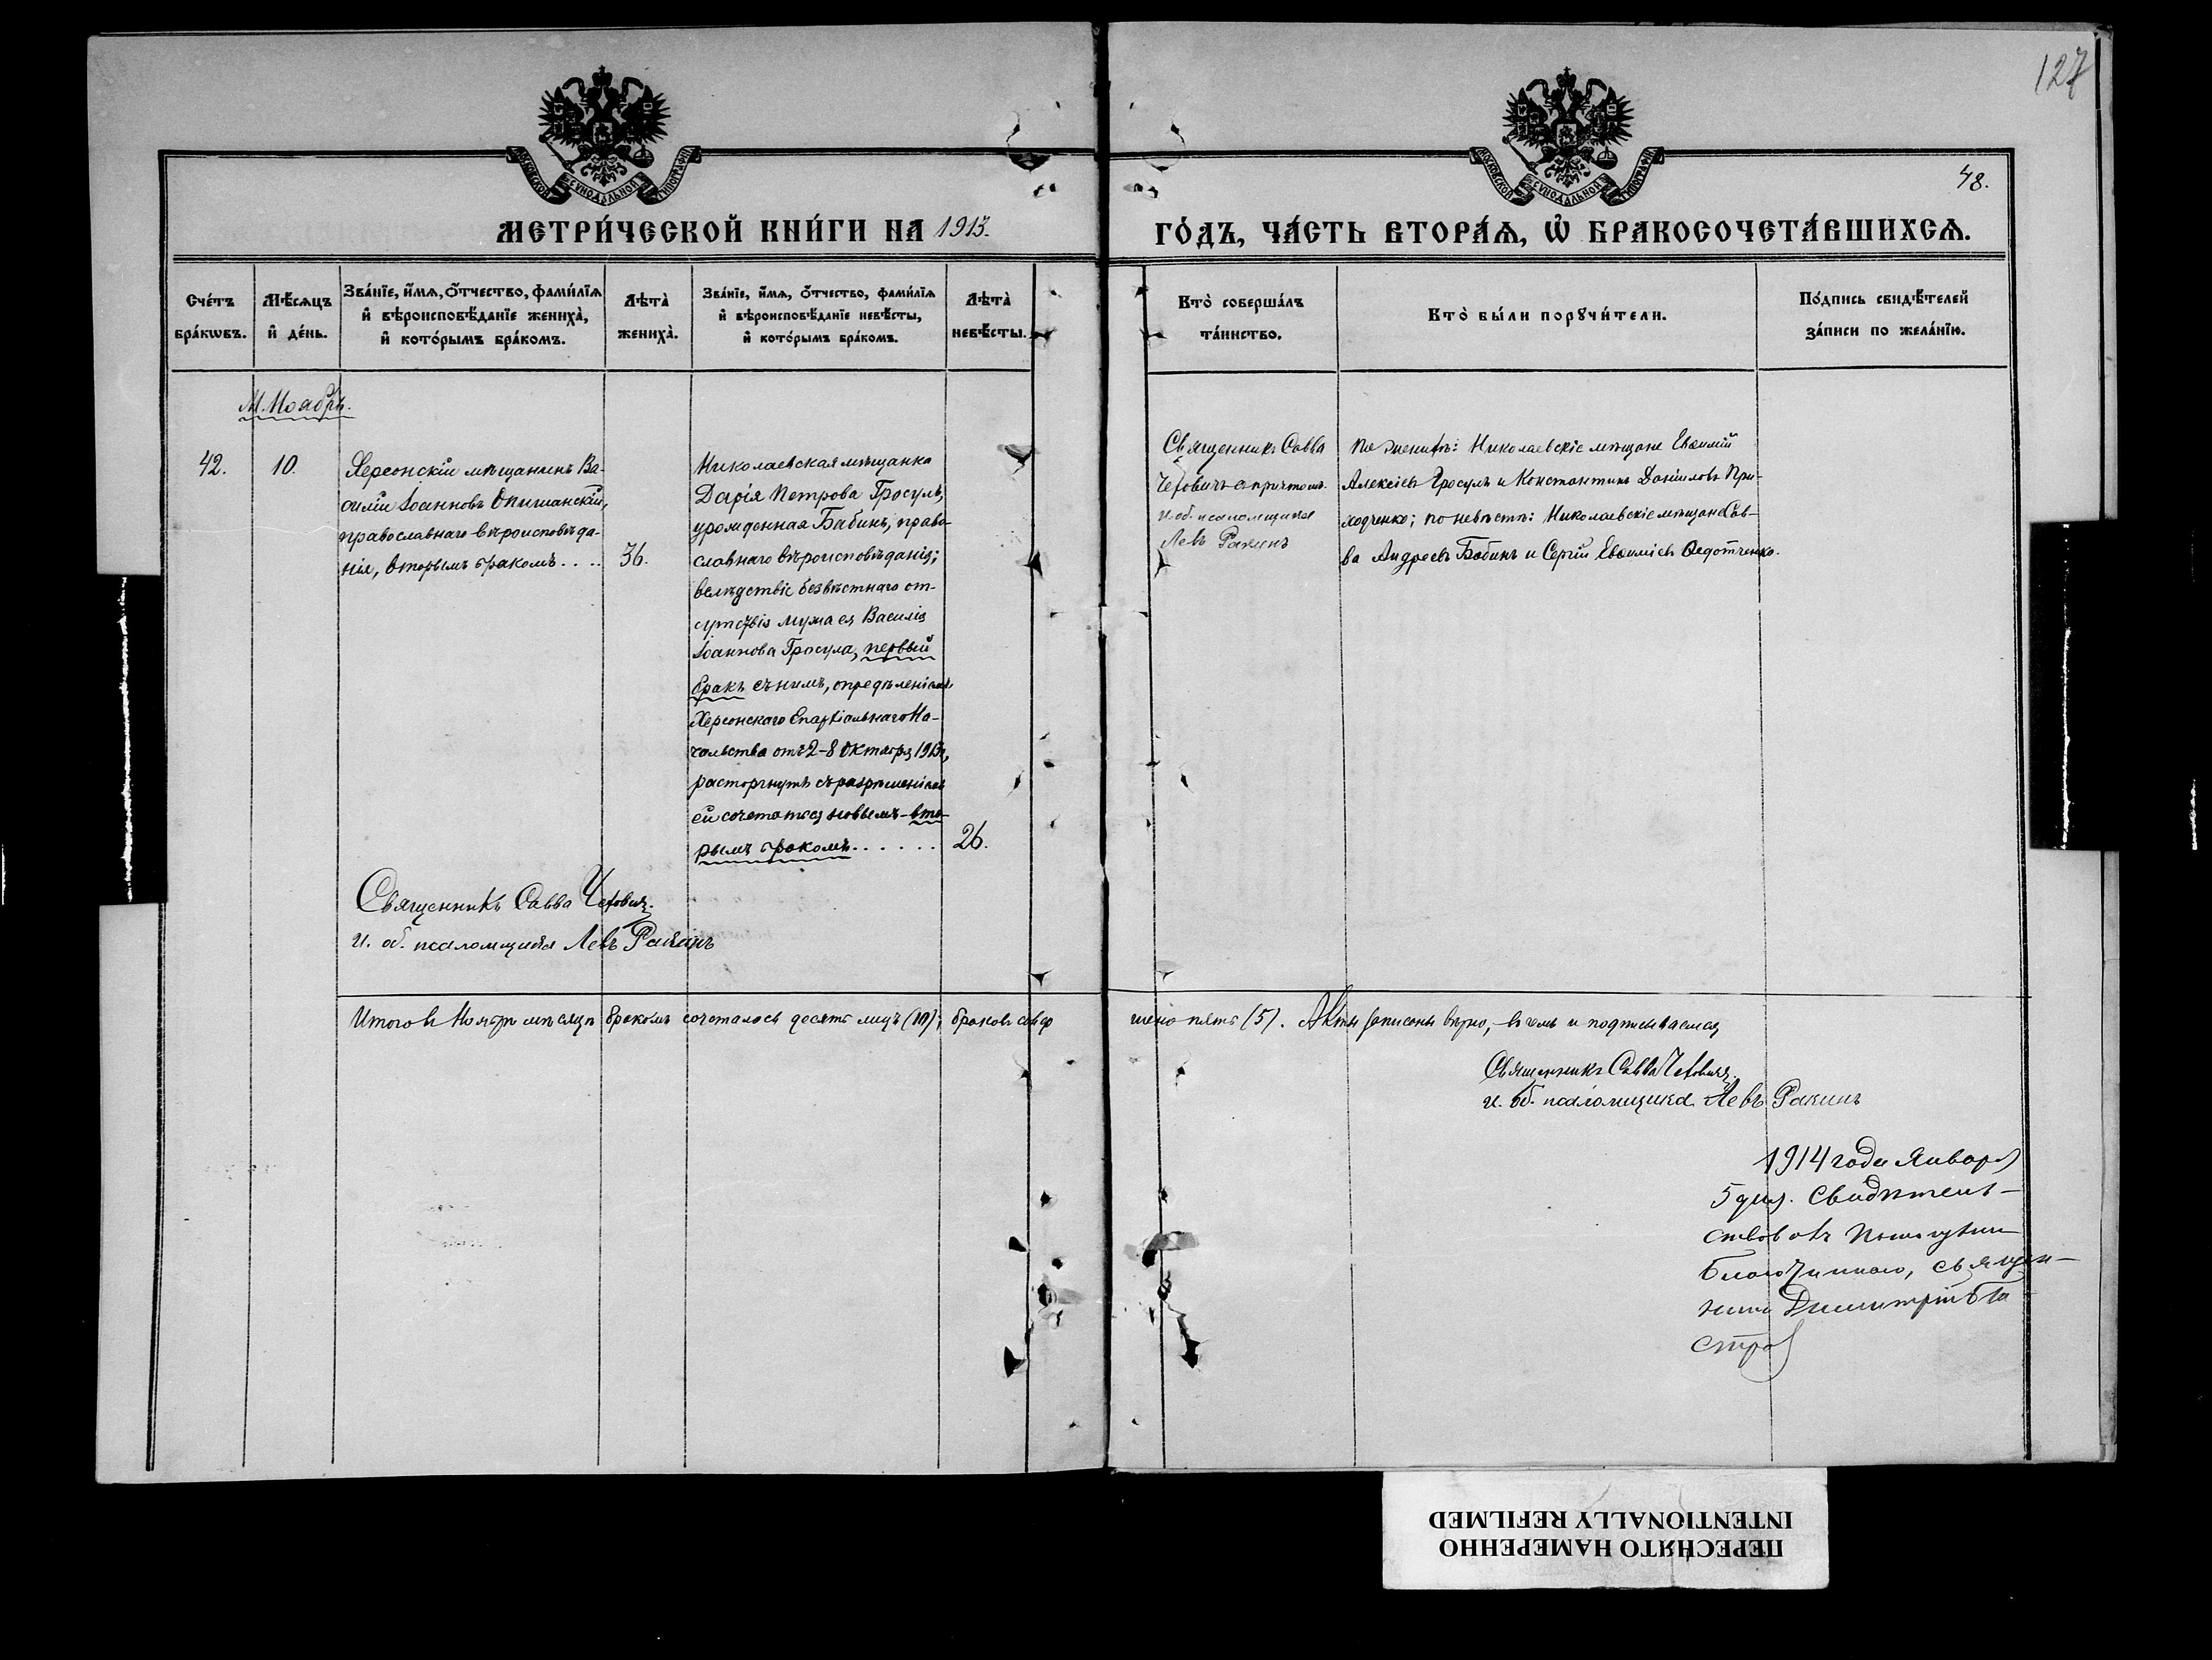 127
МОСКОВСКОЙ СѴНОДАЛЬНОЙ ТИПОГРАФІИ
МОСКОВСКОЙ СѴНОДАЛЬНОЙ ТИПОГРАФІИ
48.
МЕТРИ́ЧЕСКОЙ КНИ́ГИ НА 1913. ГО́ДЪ, ЧА́СТЬ ВТОРА́Ѧ, Ѡ҆ БРАКОСОЧЕТА́ВШИХСѦ.
Сче́тъ
бра́кѡвъ.
Мѣ́сѧцъ
и҆ де́нь.
Зва́нїе, и҆́мѧ, ѻ҆́тчество, фами́лїѧ
и҆ вѣроисповѣ́данїе жениха̀,
и҆ кото́рымъ бра́комъ.
Лѣта̀
жениха̀.
Зва́нїе, и҆́мѧ, ѻ҆́тчество, фами́лїѧ
и҆ вѣроисповѣ́данїе невѣ́сты,
и҆ кото́рымъ бра́комъ.
Лѣта̀
невѣ́сты.
Кто̀ соверша́лъ
та́инство.
Кто̀ бы́ли порꙋчи́тели.
По́дпись свидѣ́телей
за́писи по жела́нїю.
М. Ноябрь.
42.
10.
Херсонскій мѣщанинъ Ва-
силій Іоанновъ Опишанскій,
православнаго вѣроисповѣда-
нія, вторымъ бракомъ . . . .
36.
Николаевская мѣщанка
Дарія Петрова Гросулъ,
урожденная Бабинъ, право-
славнаго вѣроисповѣданія;
вслѣдствіе безвѣстнаго от-
сутствія мужа ея Василія
Іоаннова Гросула, первый
бракъ съ нимъ, опредѣленіемъ
Херсонскаго Епархіальнаго На-
чальства отъ 2-8 Октября 1913г.,
расторгнутъ съ разрѣшеніемъ
ей сочетаться новымъ - вто-
рымъ бракомъ . . . . . .
26.
Священникъ Савва
Чехович с причтомъ.
и. об. псаломщика
Левъ Ракинъ
По женихѣ: Николаевскіе мѣщане Евѳимій
Алексіевъ Гросулъ и Константинъ Даніиловъ При-
ходченко; по невѣстѣ: Николаевскіе мѣщане Сав-
ва Андреевъ Бабинъ и Сергій Евѳиміевъ Ѳедотченко.
Священникъ Савва Чеховичъ.
и. об. псаломщика Левъ Ракинъ
Итого въ Ноябрѣ мѣсяцѣ бракомъ сочеталось десять лицъ (10); браковъ совер
шено пять (5). Акты записаны вѣрно, - въ чемъ и подписываемся
Священникъ Савва Чеховичъ.
и. об. псаломщика Левъ Ракинъ
1914 года Января
5 дня. Свидѣтель-
ствовалъ Помощникъ
благочиннаго, священ-
никъ Димитрій
ПЕРЕСНЯТО НАМЕРЕННО
INTENTIONALLY REFILMED